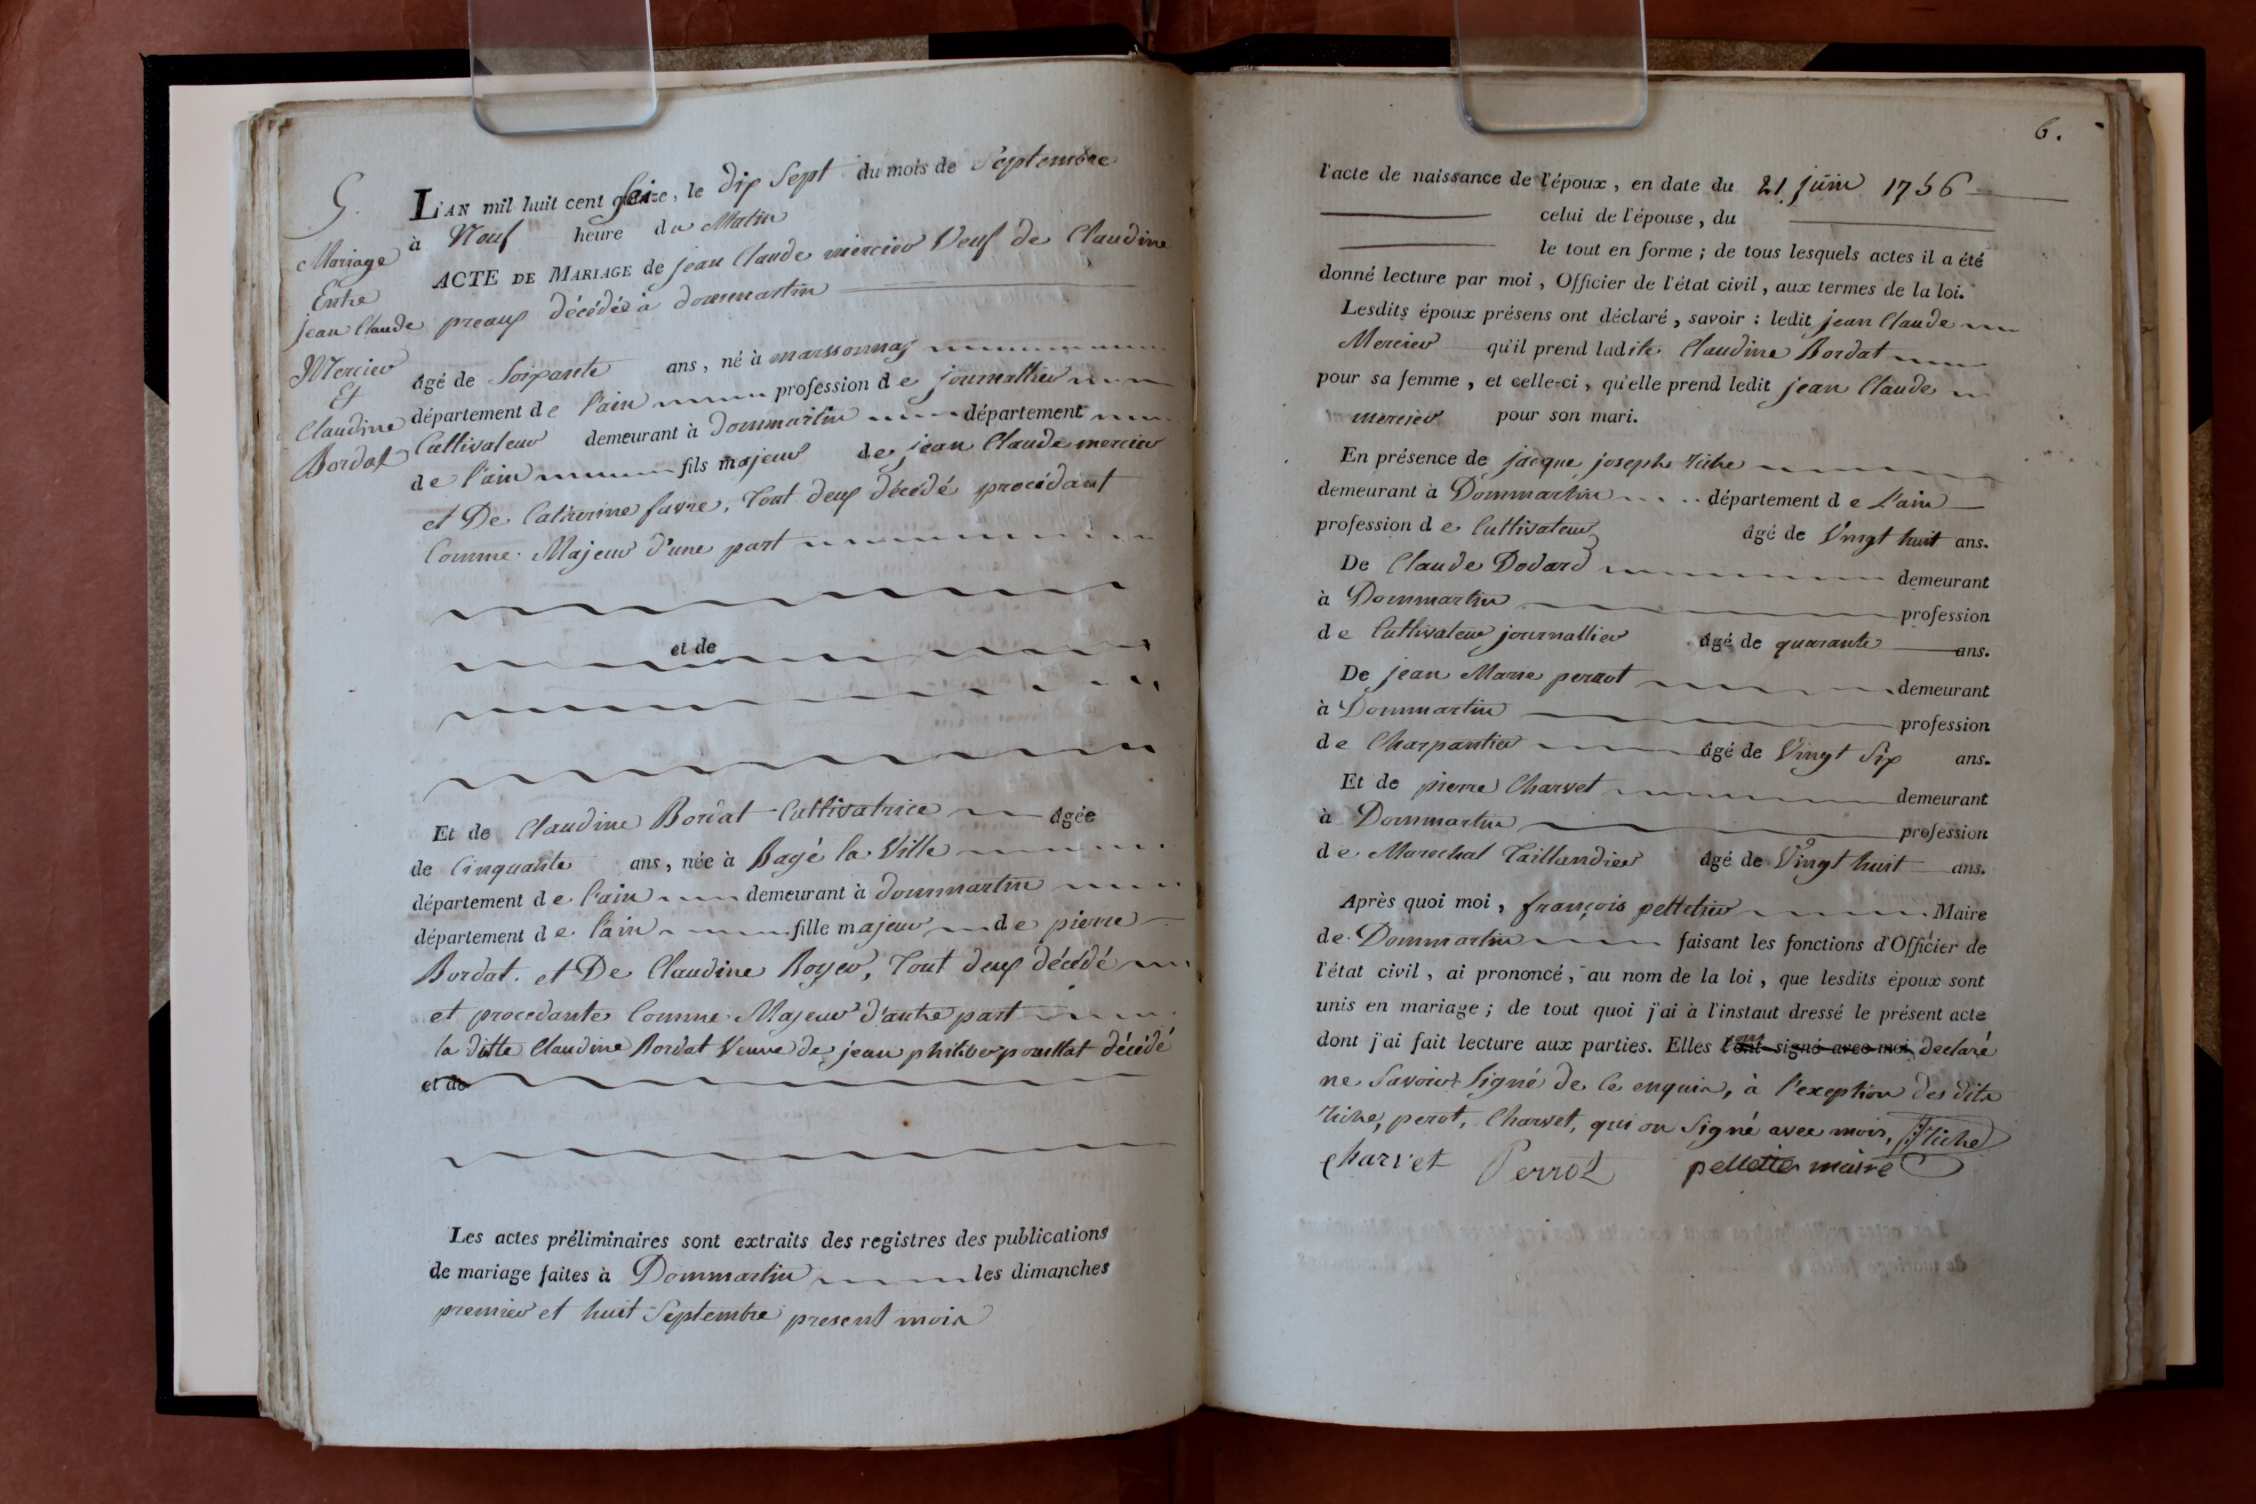 5.
Mariage
Entre
jean Claude
Mercier
Et
Claudine
Bordat
L'AN mil huit cent seize, le dix sept du mois de Septembre
à Neuf heure du Matin
ACTE DE MARIAGE de jean Claude mercier Veuf de Claudine
preaux décédée à dommartin
âgé de Soixante ans, né à marssonnay
département de l'ain profession de journallier
Cultivateur demeurant à dommartin département
de l'ain fils majeur de jean Claude mercier
et De Catherine favre, Tout deux décédé procédant
Comme Majeur d'une part
et de
Et de Claudine Bordat Cultivatrice âgée
de Cinquante ans, née à Bagé la Ville
département de l'ain demeurant à dommartin
département de l'ain fille majeur de pierre
Bordat et De Claudine Royer, Tout deux décédé
et procedante Comme Majeur d'autre part
la ditte Claudine Bordat Veuve de jean philiber pouillat décédé
et de
Les actes préliminaires sont extraits des registres des publications
de mariage faites à Dommartin les dimanches
premier et huit Septembre present mois
6.
l'acte de naissance de l'époux, en date du 21 juin 1756
celui de l'épouse, du
le tout en forme; de tous lesquels actes il a été
donné lecture par moi, Officier de l'état civil, aux termes de la loi.
Lesdits époux présens ont déclaré, savoir: ledit jean Claude
Mercier qu'il prend ladite Claudine Bordat
pour sa femme, et celle-ci, qu'elle prend ledit jean Claude
mercier pour son mari.
En présence de jacque joseph riche
demeurant à Dommartin département de l'ain
profession de Cultivateur âgé de Vingt huit ans.
De Claude Dodard demeurant
à Dommartin profession
de Cultivateur journallier âgé de quarante ans.
De jean Marie perrot demeurant
à Dommartin profession
de Charpantier âgé de Vingt Six ans.
Et de pierre Charvet demeurant
à Dommartin profession
de Marechal Taillandier âgé de Vingt huit ans.
Après quoi moi, françois pelletier Maire
de Dommartin faisant les fonctions d'Officier de
l'état civil, ai prononcé, au nom de la loi, que lesdits époux sont
unis en mariage; de tout quoi j'ai à l'instaut dressé le présent acte
dont j'ai fait lecture aux parties. Elles l'ont signé avec moi, declaré
ne Savoir Signé de Ce enquis, à l'exeption des dits
riche, perot, Charvet, qui on Signé avec mois, JJ riche
Charvet Perrot pelletier maire